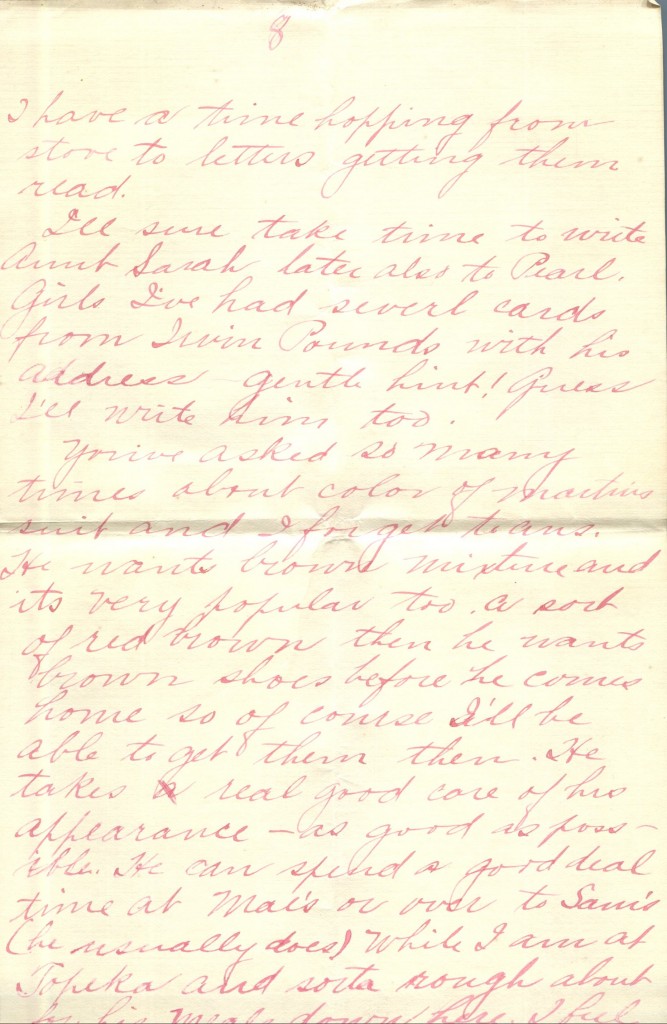 8
I have a time hopping from
stove to letters getting them
read.
I'll sure take time to write
Aunt Sarah later also to Pearl.
Girls I've had severl cards
from Irvin Pounds with his
address gentle hint! Guess
I'll write him too.
You've asked so many
times about color of Martins
suit and I forget to ans.
He wants brown mixture and
its very popular too. a sort
of red brown then he wants
brown shoes before he comes
home so of course I'll be
able to get them then. He
takes a real good care of his
appearance – as good as poss-
ible. He can spend a good deal
time at Mae's or over to Sam's
(he usually does) While I am at
Topeka and sorta rough about
his meals down here I feel